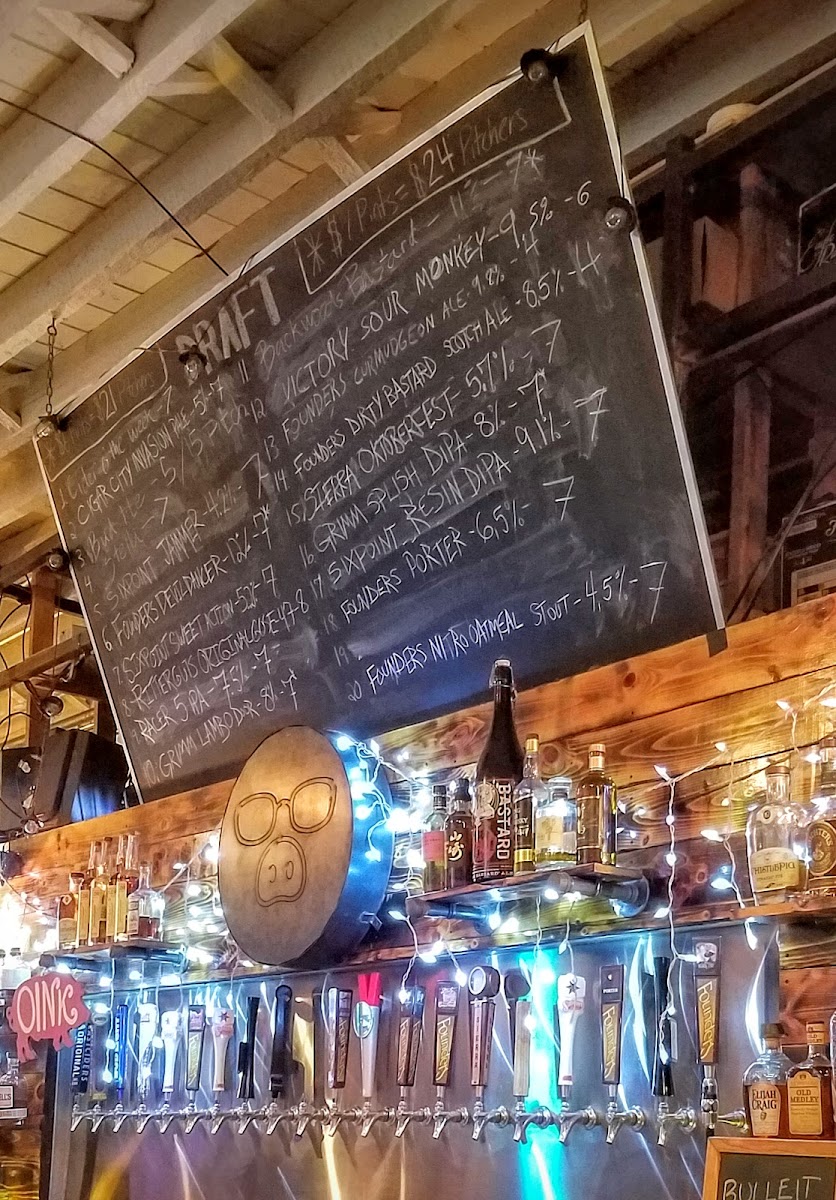 DRAFT
* $7 Pints = $24 Pitchers
2. CIGAR CITY INVASION PALE - 5 - 7
4 Stella - 7
5 SIXPOINT JAMMER - 4.2% - 7
6 FOUNDERS DEVIL DANCER - 12% - 7*
7 SIXPOINT SWEET ACTION - 5.2% - 7
ORIGINAL GOSE 4.7 - 8
RACER 5 IPA - 7.5% - 7
10. GRIMM LAMBO DOOR - 8% - 7*
11 Backwoods Bastard - 11% - 7*
12 VICTORY SOUR MONKEY - 9.5% - 6
13 FOUNDERS CURMUDGEON ALE - 9.8% - 4
14 FOUNDERS DIRTY BASTARD SCOTCH ALE - 8.5% - 4
15 SIERRA OKTOBERFEST - 5.7% - 7
16 GRIMM SPLISH DIPA - 8% - 7*
17 SIXPOINT RESIN DIPA - 9.1% - 7
18 FOUNDERS PORTER - 6.5% - 7
19
20 FOUNDERS NITRO OATMEAL STOUT - 4.5% - 7
BASTARD
OINK
Founders
Founders
Founders
Founders
ELIJAH CRAIG
OLD MEDLEY
BULLEIT